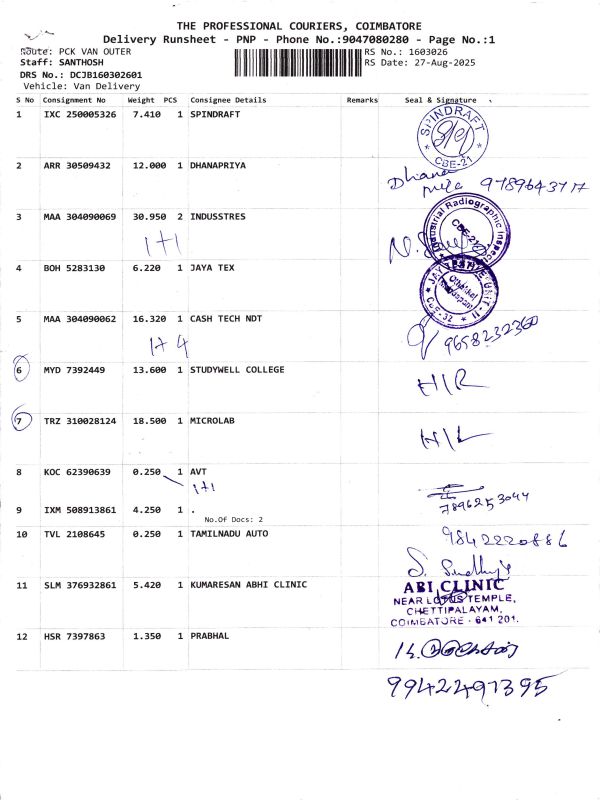 THE PROFESSIONAL COURIERS, COIMBATORE
Delivery Runsheet - PNP - Phone No.:9047080280 - Page No.:1
Route: PCK VAN OUTER
RS No.: 1603026
Staff: SANTHOSH
RS Date: 27-Aug-2025
DRS No.: DCJB160302601
Vehicle: Van Delivery
S No Consignment No Weight PCS Consignee Details Remarks Seal & Signature
1 IXC 250005326 7.410 1 SPINDRAFT
SPINDRAFT
CBE-21
2 ARR 30509432 12.000 1 DHANAPRIYA
Dhana
9789643717
3 MAA 304090069 30.950 2 INDUSSTRES
1+1
Industrial Radiographic
CBE-21
4 BOH 5283130 6.220 1 JAYA TEX
CBE-32
5 MAA 304090062 16.320 1 CASH TECH NDT
1+4
9658232360
6 MYD 7392449 13.600 1 STUDYWELL COLLEGE
H/R
7 TRZ 310028124 18.500 1 MICROLAB
H/L
8 KOC 62390639 0.250 1 AVT
1+1
7896253044
9 IXM 508913861 4.250 1 .
No.Of Docs: 2
10 TVL 2108645 0.250 1 TAMILNADU AUTO
9842220886
11 SLM 376932861 5.420 1 KUMARESAN ABHI CLINIC
ABI CLINIC
NEAR LOTUS TEMPLE,
CHETTIPALAYAM,
COIMBATORE - 641 201.
12 HSR 7397863 1.350 1 PRABHAL
9942497395